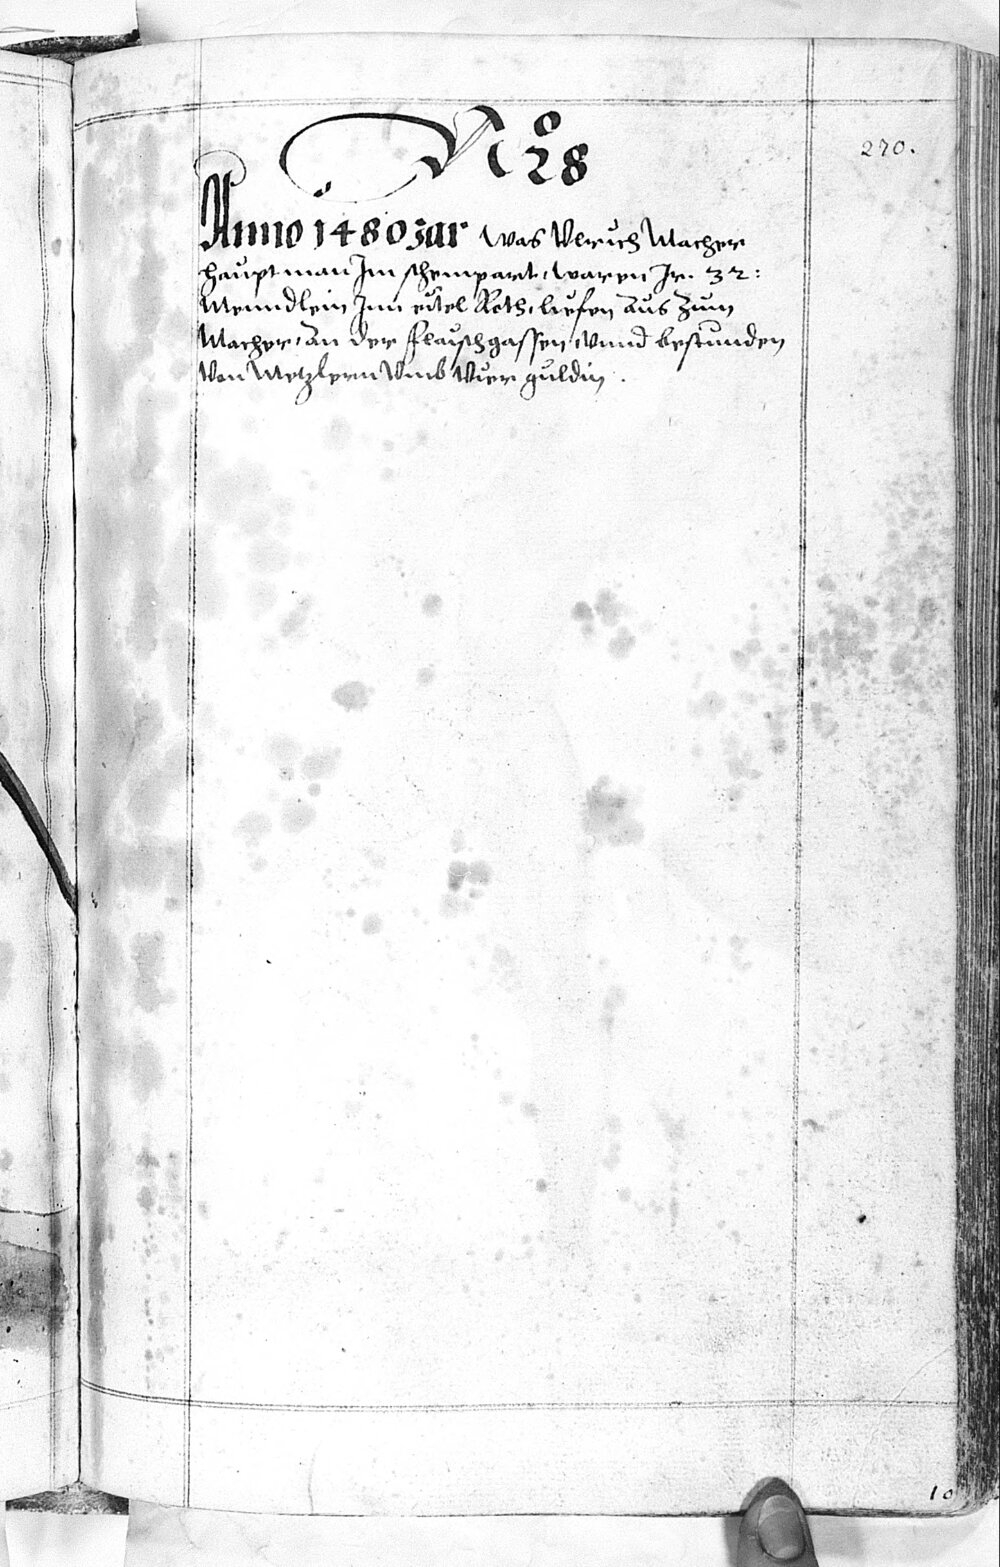 No 28
270.
Anno 1480 Jar Was Vlrich Macher
haupt man Im schempart, waren Jr. 32:
Menndlein Inn eitel Roth, liefen aus zum
Macher, an der flaischgassen, Vnnd bestunden
Von Metzlern Vmb Vier guldin.
10